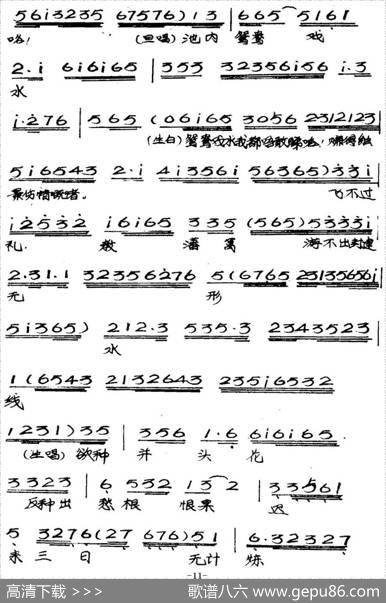 5613235 67576)13 | 665 5161
咯! (旦唱)池内 鸳鸯 戏
2·i 6i6i65 | 353 32356i56 i·3
水
i·276 | 565 (06i65 3056 2312123
(生白)鸳鸯戏水我都唔敢睇啦,
5i6543 2·i 4i3561 56365)33i
飞不过
i2532 i6i65 335 (565)5331
礼 教 藩 篱 游不出封建
2·31·1 323356276 5(6765 231356561
无 形
5i365) 212·3 535·3 2343523
水
1(6543 2132643 235i6532
线
1231)35 | 356 1·6 6i6i65
(生唱)欲种 并 头 花
3323 | 6 532 13 2 | 33561
反种出 愁根 恨果 迟
5 3276(27 676)51 | 6·32327
来三日 无计 炼
-11-
高清下载 >>> 歌谱八六 www.gepu86.com